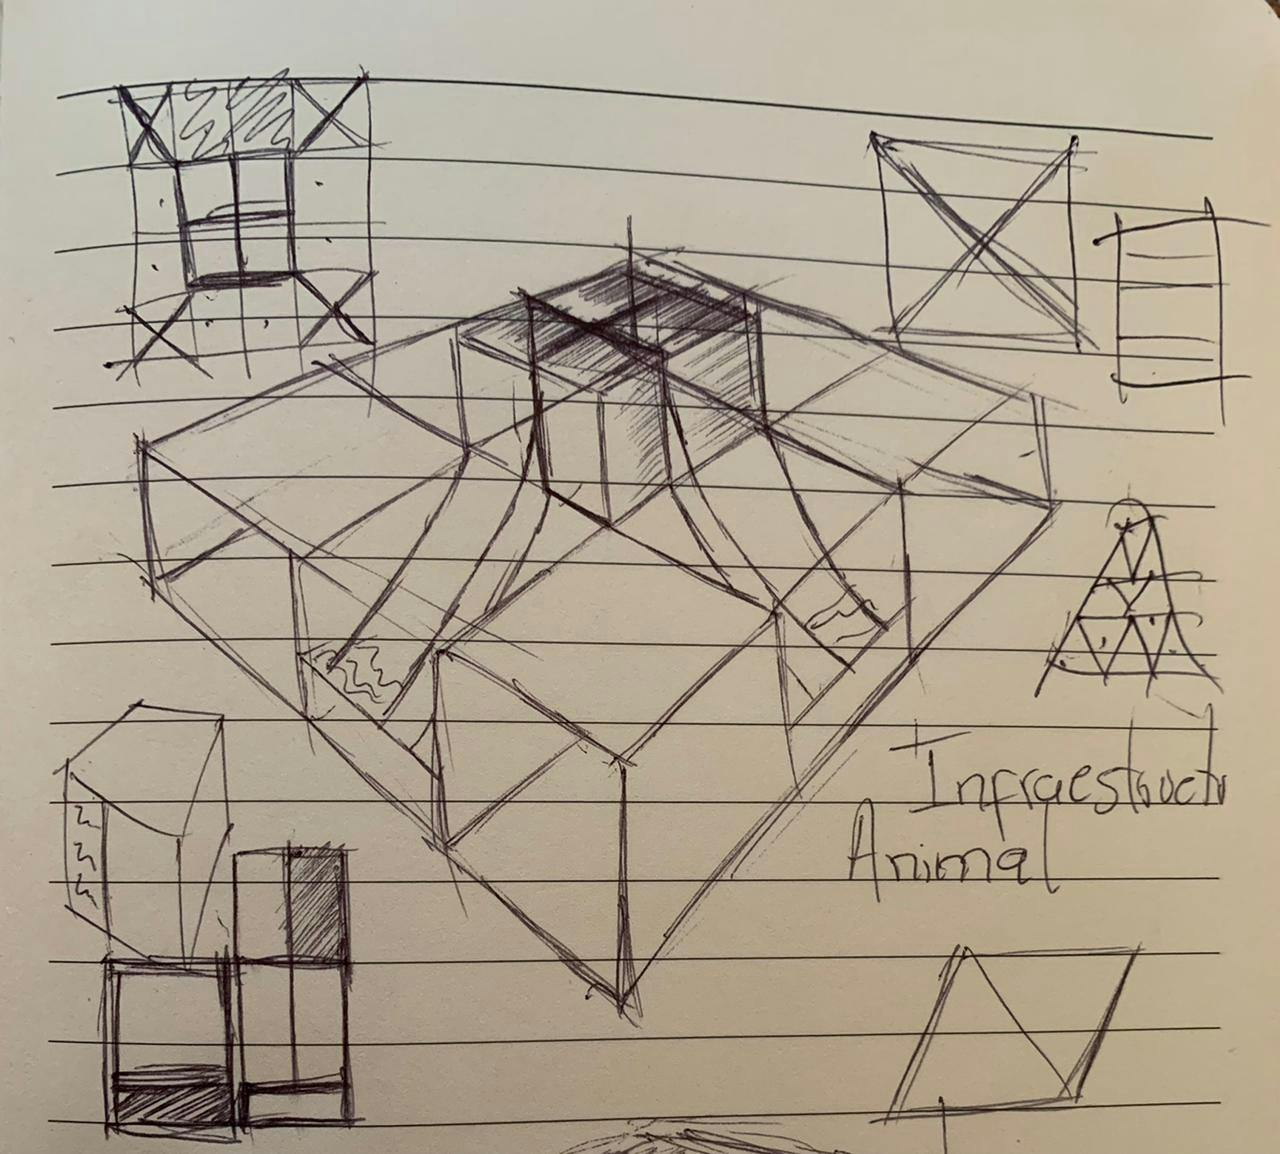 Infraestructu
Animal